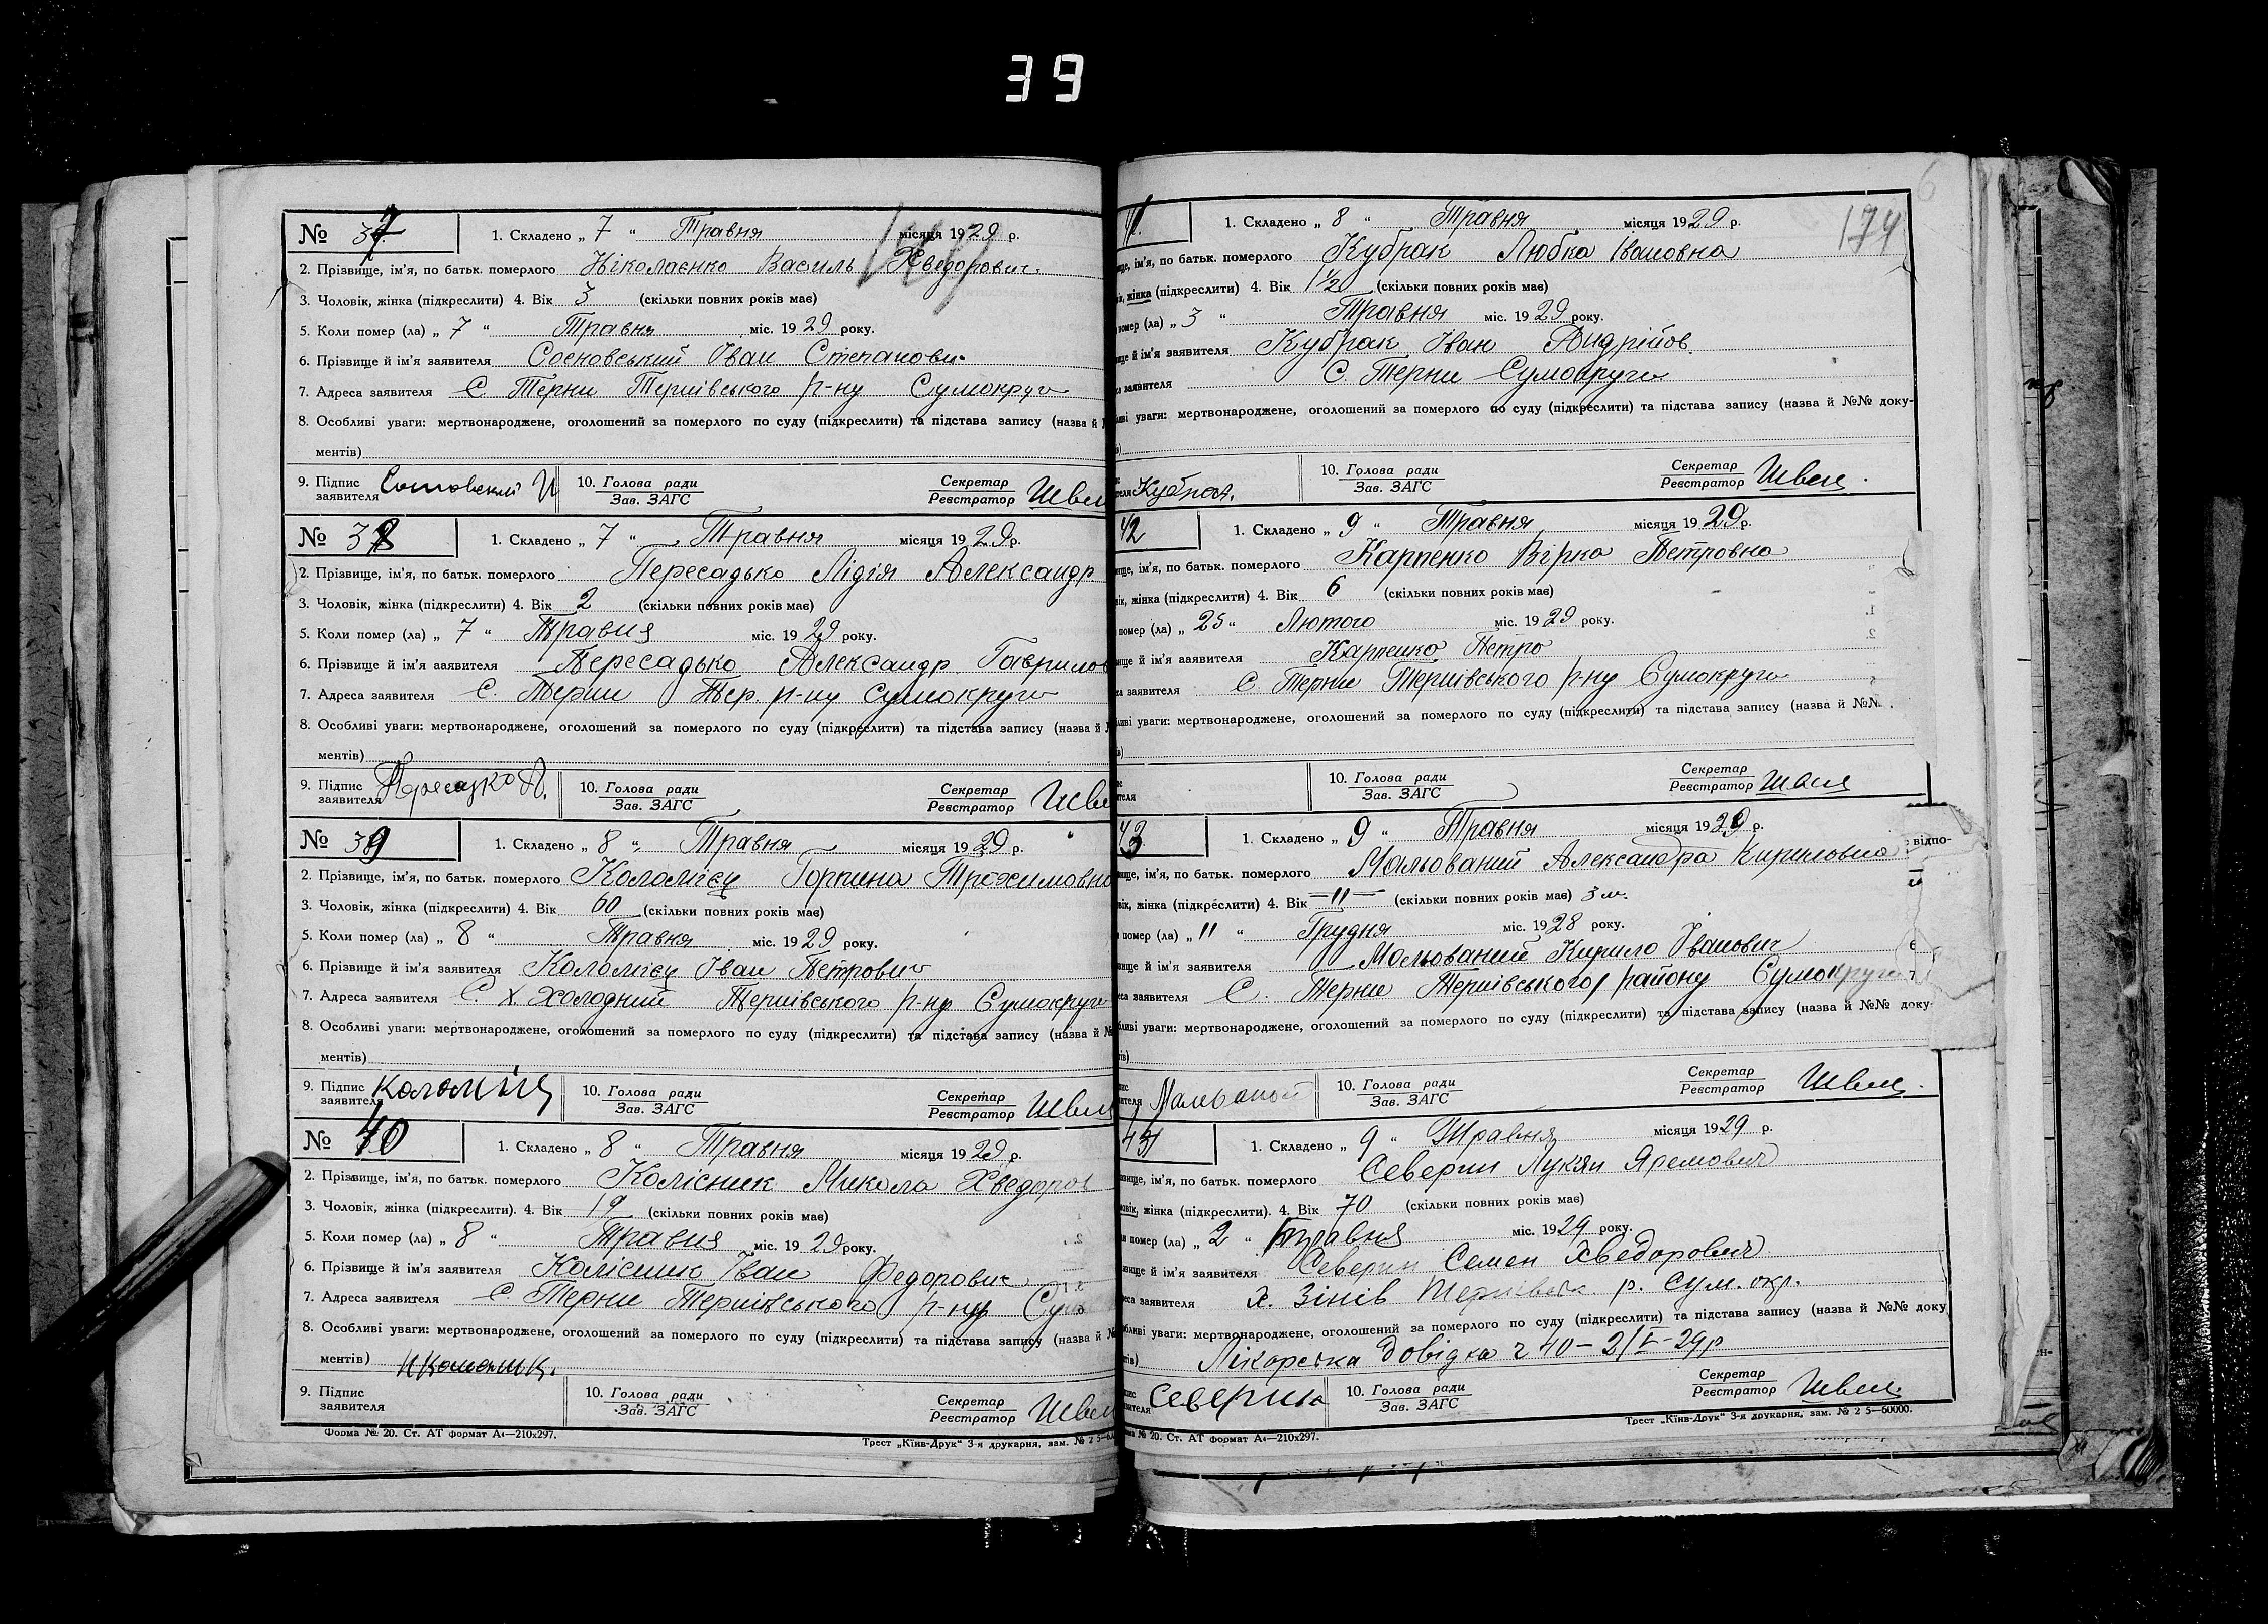 39
№ 37 1. Складено „ 7 “ Травня місяця 1929 р.
2. Прізвище, ім'я, по батьк. померлого Ніколаєнко Василь Хведорович.
3. Чоловік, жінка (підкреслити) 4. Вік 3 (скільки повних років має)
5. Коли помер (ла) „ 7 “ Травня міс. 1929 року.
6. Прізвище й ім'я заявителя Сосновський Іван Степанович
7. Адреса заявителя С Терни Тернівського р-ну Сумокруги
8. Особливі уваги: мертвонароджене, оголошений за померлого по суду (підкреслити) та підстава запису (назва й
ментів)
9. Підпис заявителя 10. Голова ради Зав. ЗАГС Секретар Реєстратор Швец
№ 38 1. Складено „ 7 “ Травня місяця 1929р.
2. Прізвище, ім'я, по батьк. померлого Пересадько Лідія Александр.
3. Чоловік, жінка (підкреслити) 4. Вік 2 (скільки повних років має)
5. Коли помер (ла) „ 7 “ Травня міс. 1929 року.
6. Прізвище й ім'я заявителя Пересадько Александр Гаврилов
7. Адреса заявителя С. Терни Тер. р-ну Сумокруги
8. Особливі уваги: мертвонароджене, оголошений за померлого по суду (підкреслити) та підстава запису (назва й
ментів)
9. Підпис заявителя 10. Голова ради Зав. ЗАГС Секретар Реєстратор Шве
№ 39 1. Складено „ 8 “ Травня місяця 1929 р.
2. Прізвище, ім'я, по батьк. померлого Коломієц Горпина Трохимовна
3. Чоловік, жінка (підкреслити) 4. Вік 60 (скільки повних років має)
5. Коли помер (ла) „ 8 “ Травня міс. 1929 року.
6. Прізвище й ім'я заявителя Коломієц Іван Петрович
7. Адреса заявителя С. х. Холодний Тернівського р-ну Сумокруги
8. Особливі уваги: мертвонароджене, оголошений за померлого по суду (підкреслити) та підстава запису (назва й №
ментів)
9. Підпис заявителя Коломіец 10. Голова ради Зав. ЗАГС Секретар Реєстратор Швец
№ 40 1. Складено „ 8 “ Травня місяця 1929 р.
2. Прізвище, ім'я, по батьк. померлого Колісник Микола Хведоров
3. Чоловік, жінка (підкреслити). 4. Вік 19 (скільки повних років має)
5. Коли помер (ла) „ 8 “ Травня міс. 1929 року.
6. Прізвище й ім'я заявителя Колісник Іван Федорович
7. Адреса заявителя С. Терни Тернівського р-ну Сумо
8. Особливі уваги: мертвонароджене, оголошений за померлого по суду (підкреслити) та підстава запису (назва й №
ментів)
9. Підпис заявителя 10. Голова ради Зав. ЗАГС Секретар Реєстратор Швец
Форма № 20. Ст. АТ формат А4—210х297. Трест „Київ-Друк“ 3-я друкарня, зам. №
174
41. 1. Складено „ 8 “ Травня місяця 1929 р.
ім'я, по батьк. померлого Кубрак Любка Івановна
жінка (підкреслити) 4. Вік 1½ (скільки повних років має)
помер (ла) „ 3 “ Травня міс. 1929 року.
й ім'я заявителя Кубрак Іван Андрійов.
заявителя С. Терни Сумокруги
уваги: мертвонароджене, оголошений за померлого по суду (підкреслити) та підстава запису (назва й №№ доку-
Кубрак. 10. Голова ради Зав. ЗАГС Секретар Реєстратор Швец.
42 1. Складено „ 9 “ Травня місяця 1929р.
ім'я, по батьк. померлого Карпенко Вірка Петровна
жінка (підкреслити) 4. Вік 6 (скільки повних років має)
помер (ла) „ 25 “ Лютого міс. 1929 року.
й ім'я заявителя Карпенко Петро
заявителя С. Терни Тернівського р-ну Сумокруги
уваги: мертвонароджене, оголошений за померлого по суду (підкреслити) та підстава запису (назва й №№
10. Голова ради Зав. ЗАГС Секретар Реєстратор Швец
43 1. Складено „ 9 “ Травня місяця 1929 р.
відпо-
ім'я, по батьк. померлого Мальований Александра Кириловна
жінка (підкреслити) 4. Вік —11— (скільки повних років має) 3 м.
помер (ла) „ 11 “ Грудня міс. 1928 року.
й ім'я заявителя Мальований Кирило Іванович
заявителя С. Терни Тернівського району Сумокруги
уваги: мертвонароджене, оголошений за померлого по суду (підкреслити) та підстава запису (назва й №№ доку-
10. Голова ради Зав. ЗАГС Секретар Реєстратор Швец.
44 1. Складено „ 9 “ Травня місяця 1929 р.
ім'я, по батьк. померлого Северин Лукян Яремович
жінка (підкреслити). 4. Вік 70 (скільки повних років має)
помер (ла) „ 2 “ Травня міс. 1929 року.
й ім'я заявителя Северин Семен Хведорович
заявителя х. Зінів р. Сум. окр.
уваги: мертвонароджене, оголошений за померлого по суду (підкреслити) та підстава запису (назва й №№ доку
Лікарська довідка ч 40 — 2/V-29р
Северин 10. Голова ради Зав. ЗАГС Секретар Реєстратор Швец.
№ 20. Ст. АТ формат А4—210х297. Трест „Київ-Друк“ 3-я друкарня, зам. № 2 5—60000.